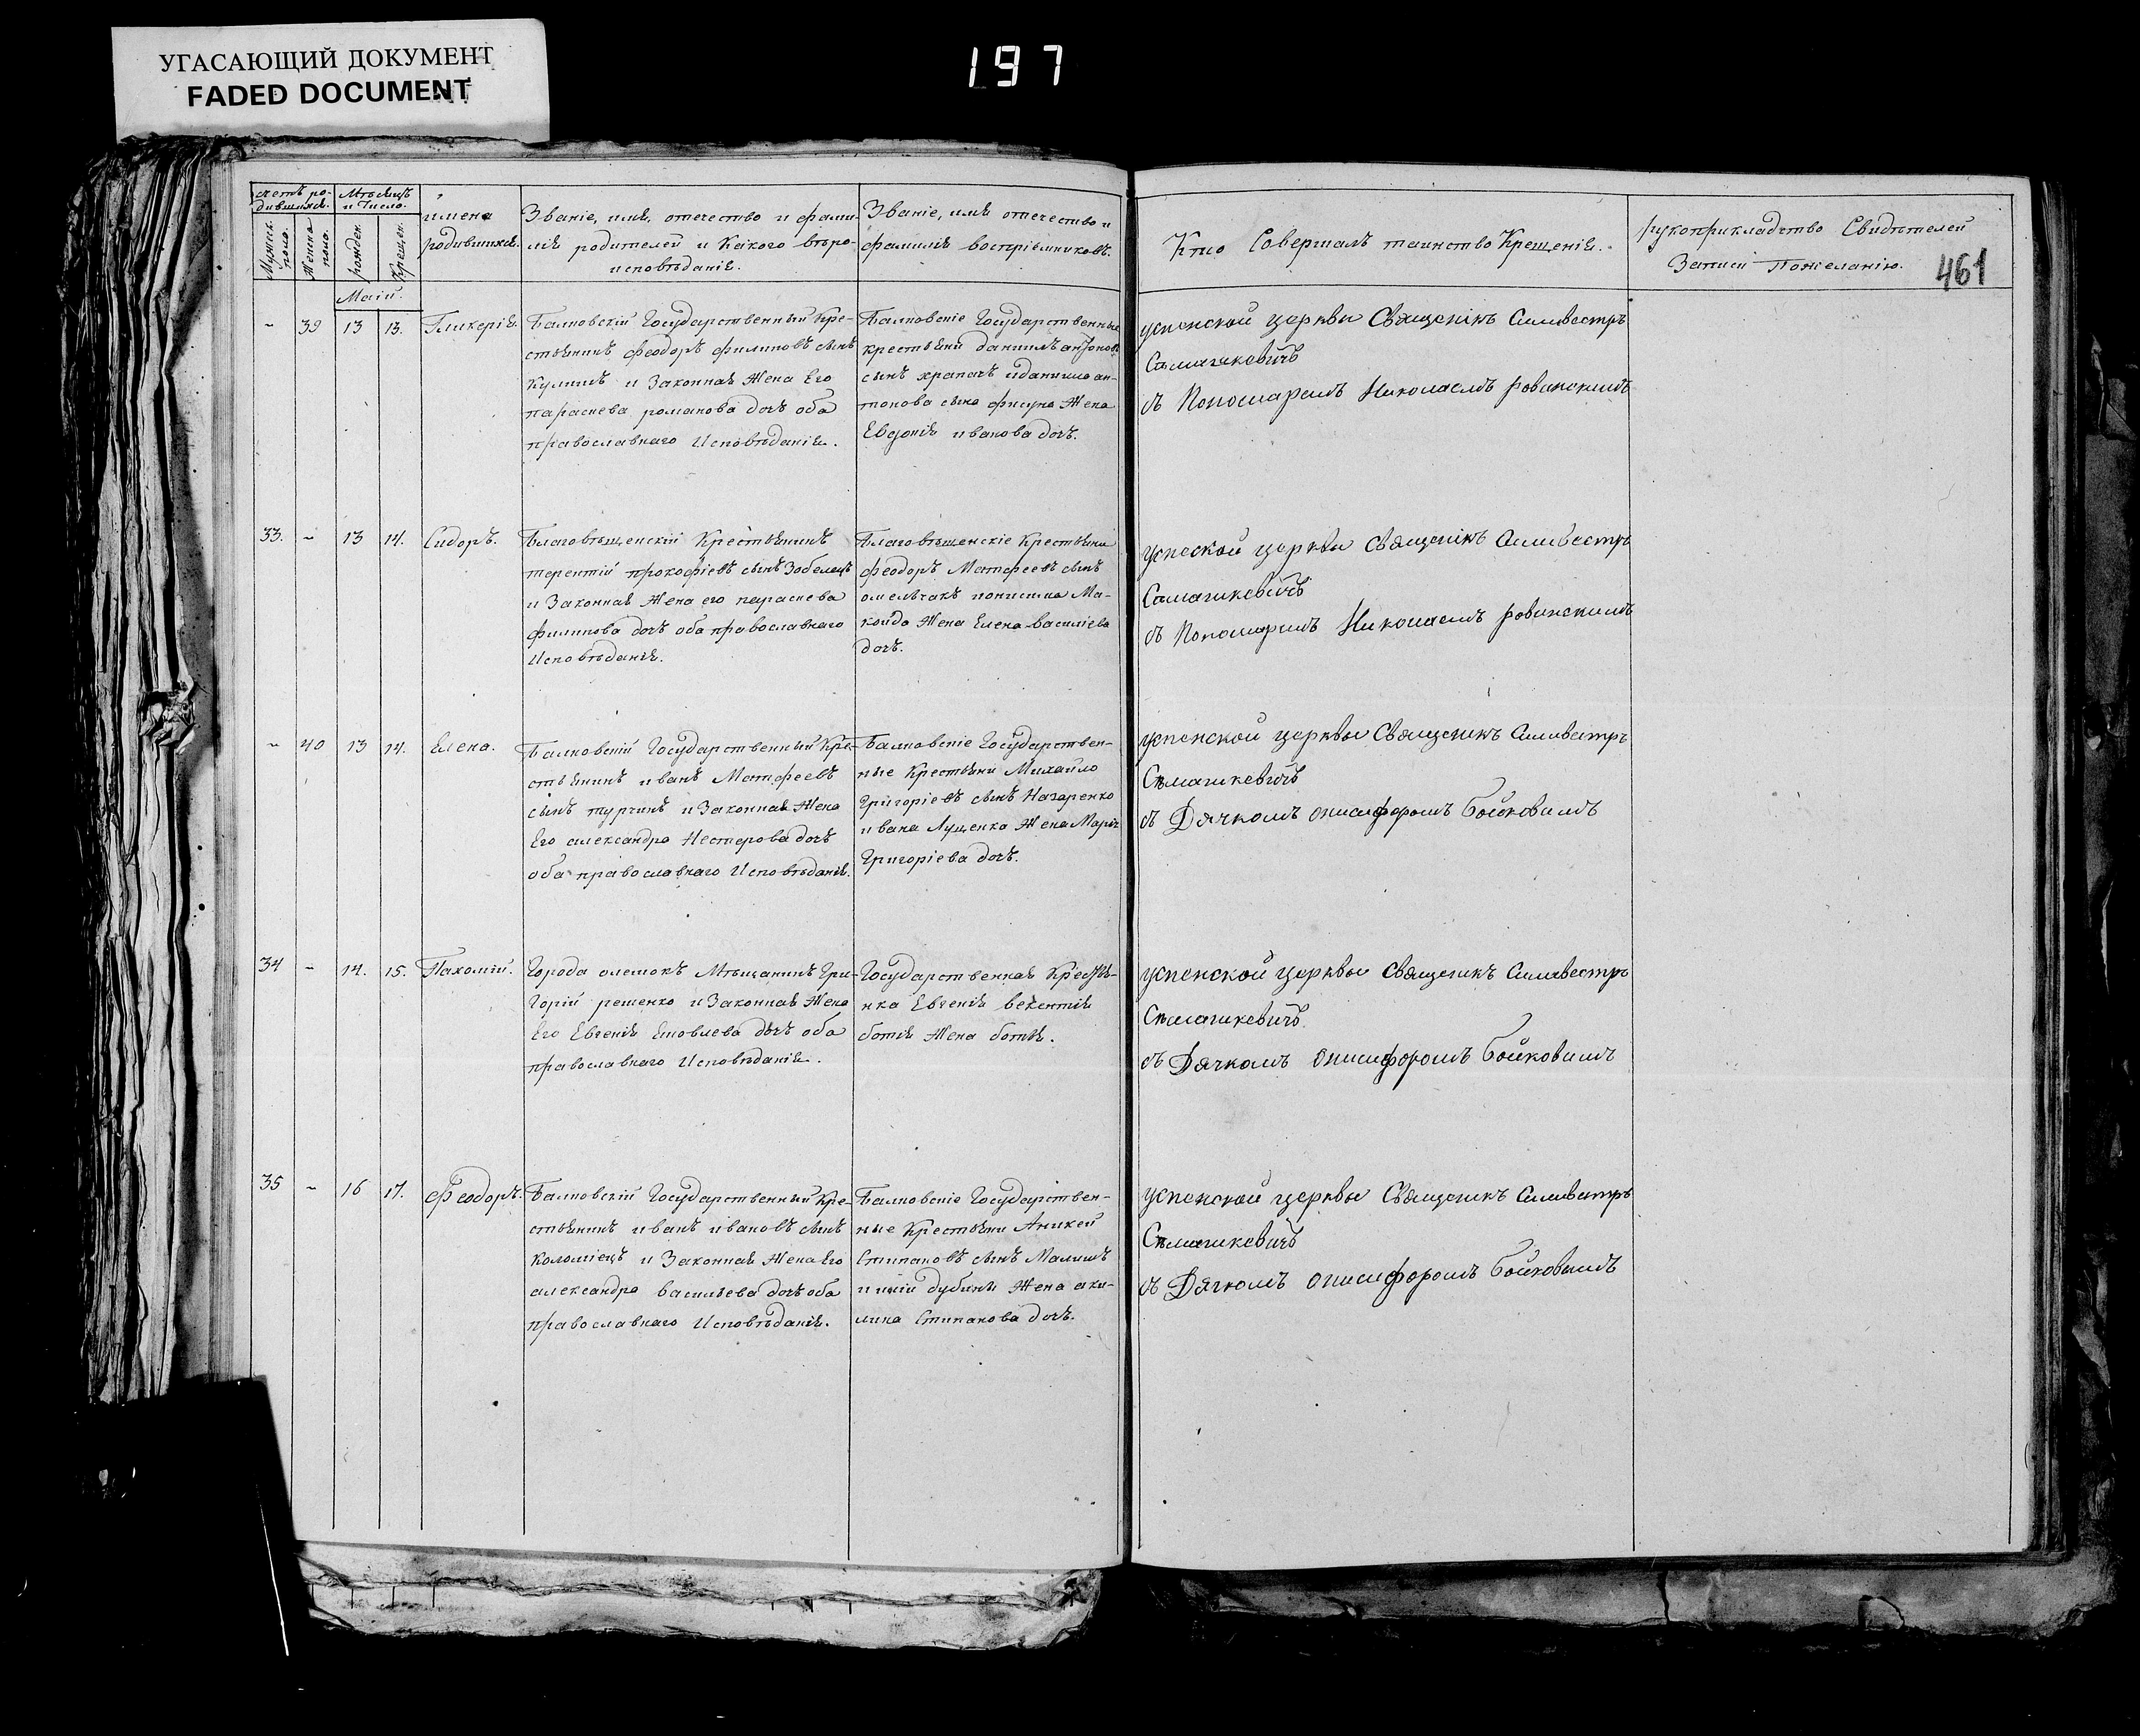 УГАСАЮЩИЙ ДОКУМЕНТ
FADED DOCUMENT
197
счетъ ро-
дившихся.
Мужеск. пола.
Женска пола.
Мѣсяцъ
и Число.
рожден.
Крещен.
имена
родившихся.
Званіе, имя, отечество и фами-
лія родителей и Какого вѣро-
исповѣданія.
Званіе, имя отечество и
фамилія воспріемниковъ.
Кто Совершалъ таинство Крещенія.
рукоприкладство Свидѣтелей
Записи Пожеланію.
461
Маій.
- 39 13 13. Гликерія.
Балковскій Государственный Кре-
стьянинъ Феодоръ Филиповъ сынъ
Кулишъ и Законная Жена Его
параскева романова дочъ оба
православнаго Исповѣданія.
Балковскіе Государственные
крестьяни даниилъ антонов
сынъ храпачъ и даниила ан-
тонова сына Жена
Евдокія иванова дочъ.
успенской церквы Священікъ Силивестръ
Самагикевичъ
съ Пономаремъ Николаемъ рованскимъ
33. - 13 14. Сидоръ.
Благовѣщенскій Крестьянинъ
терентій прокофіевъ сынъ Зобелецъ
и Законная Жена его параскева
филипова дочъ оба православнаго
Исповѣданія.
Благовѣщенскіе Крестьяни
феодоръ Матфеевъ сынъ
омельчакъ Ма-
Жена Елена василіева
дочъ.
успеской церквы Священікъ Силивестръ
Самагикевичъ
съ Пономаримъ Николаемъ рованскимъ
- 40 13 14. Елена.
Балковскій Государственный Кре-
стьянинъ иванъ Матфеевъ
сынъ турчинъ и Законная Жена
Его александра Нестерова дочъ
оба православнаго Исповѣданія.
Балковскіе Государствен-
ные Крестьяни Михайло
Григоріевъ сынъ Назаренко
и вана Луценка Жена Марія
Григоріева дочъ.
успенской церквы Священикъ Силивестръ
Самагикевичъ
съ Дячкомъ Онисифоромъ Бойковимъ
34 - 14. 15. Пахомій.
Города Мѣщанинъ Гри-
горій решенко и Законная Жена
Его Евгенія Яковлева дочъ оба
православнаго Исповѣданія.
Государственная Крестья-
нка Евгенія
Жена
успенской церквы Священикъ Силивестръ
Самагикевичъ
съ Дячкомъ Онисифоромъ Бойковимъ
35 - 16 17. Феодоръ.
Балковскій Государственный Кре-
стьянинъ иванъ ивановъ сынъ
Коломіецъ и Законная Жена Его
александра Васильева дочъ оба
православнаго Исповѣданія.
Балковскіе Государствен-
ные Крестьяни Аникей
Стипановъ сынъ Малишъ
дубини Жена аки-
лина Стипанова дочъ.
успенской церквы Священикъ Силивестръ
Самагикевичъ
съ Дячкомъ Онисифоромъ Бойковымъ